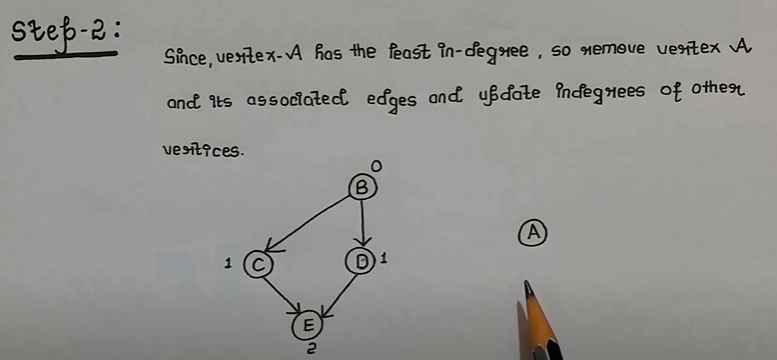 Step-2:
Since, vertex-A has the least in-degree, so remove vertex A
and its associated edges and update indegrees of other
vertices.
0
B
A
1 C
D 1
E
2